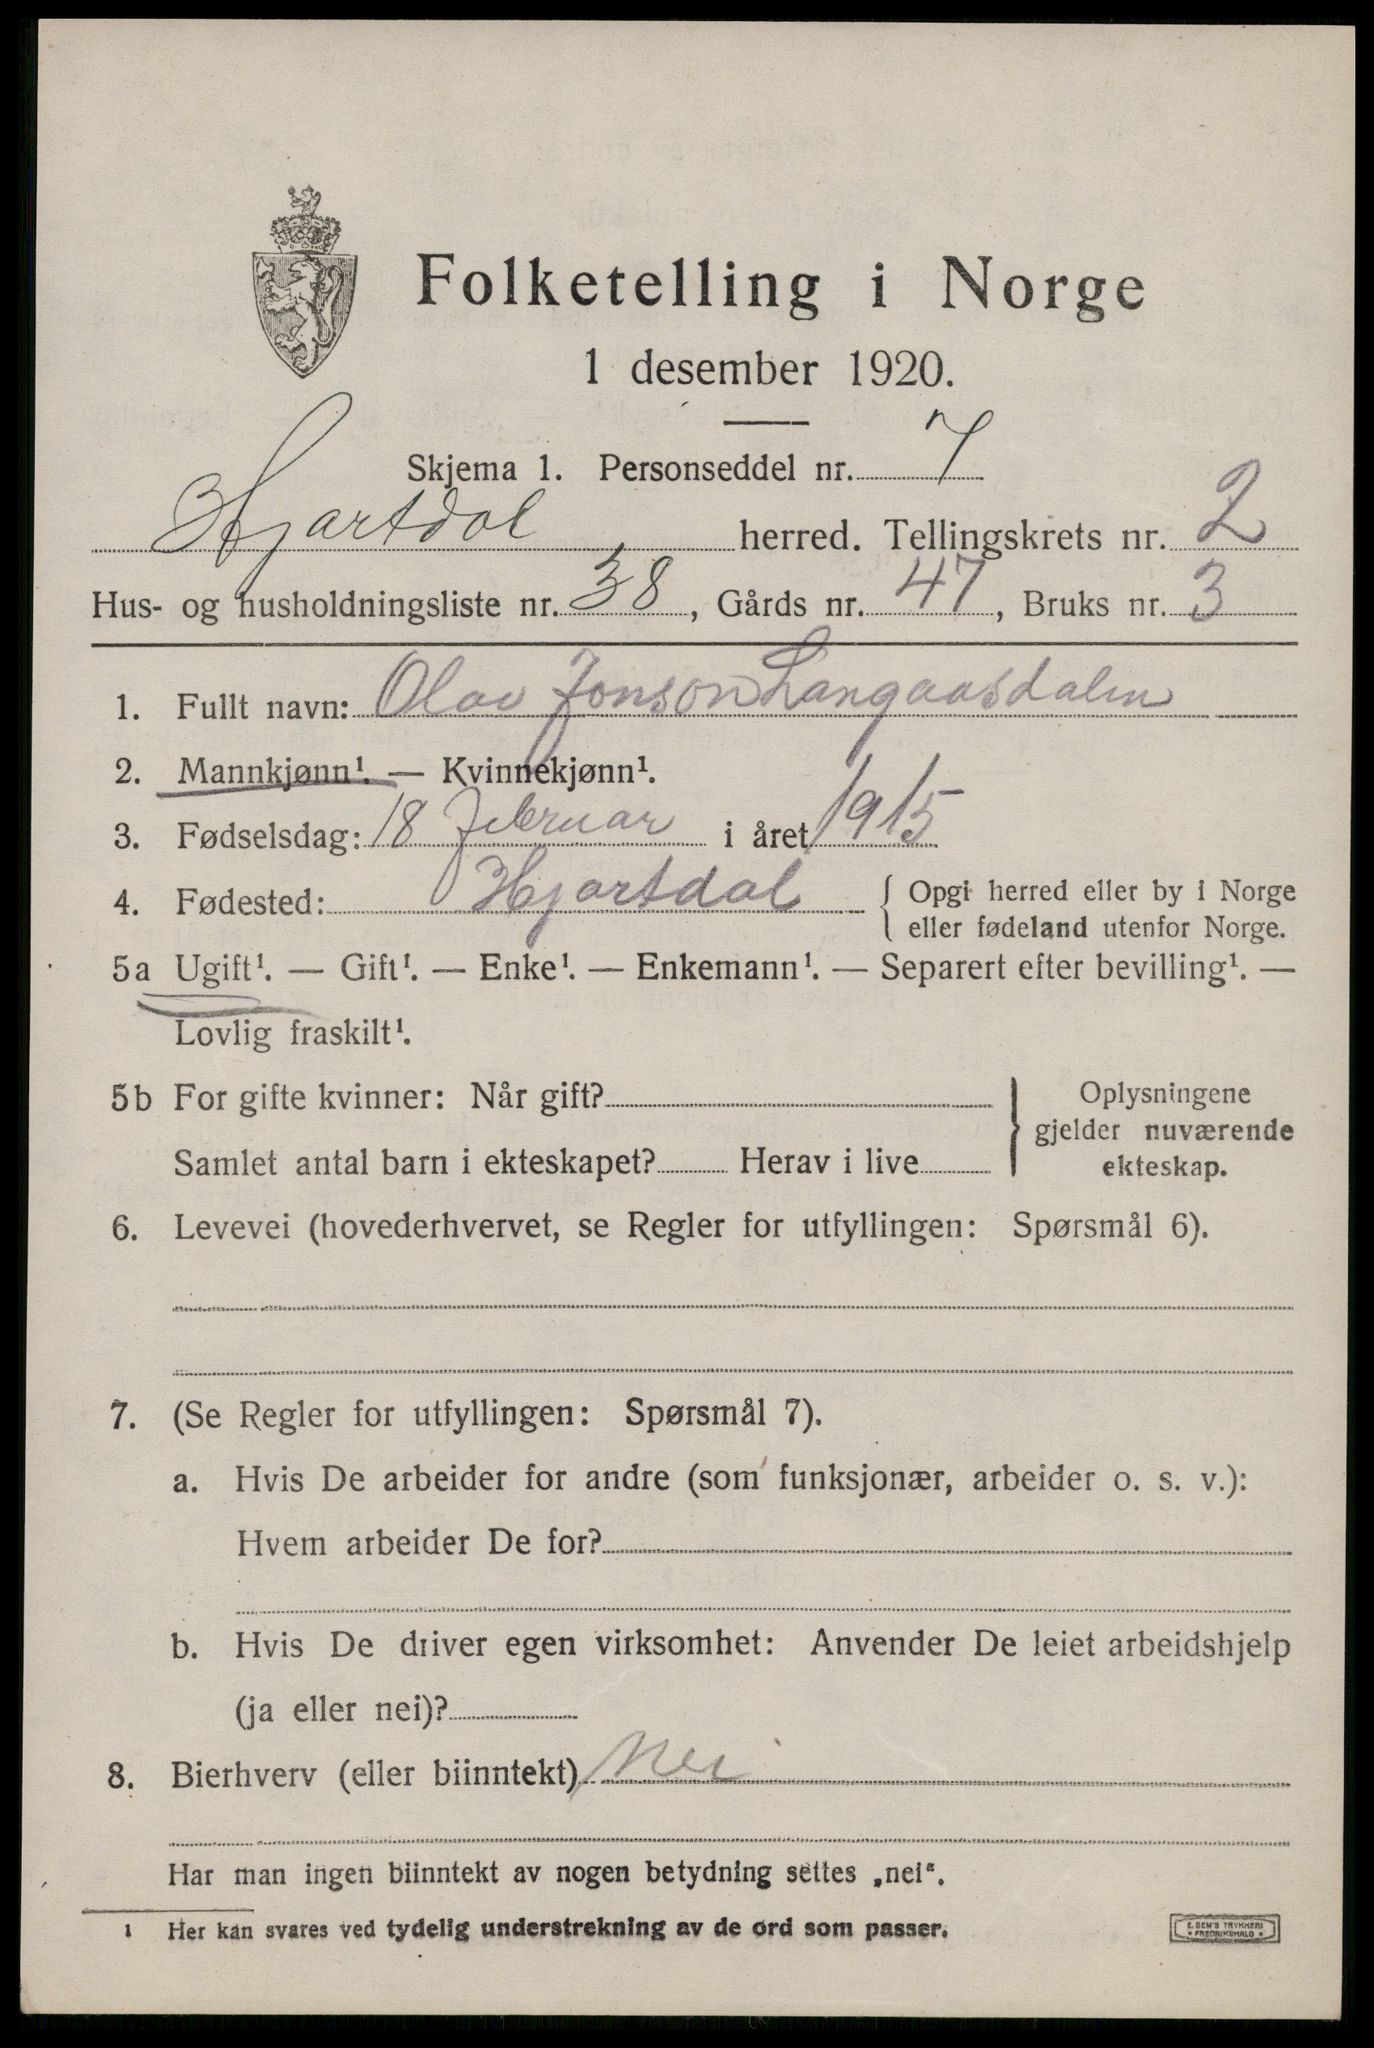 Folketelling i Norge
1 desember 1920.
Skjema 1. Personseddel nr. 7
Hjartdal herred. Tellingskrets nr. 2
Hus- og husholdningsliste nr. 38, Gårds nr. 47, Bruks nr. 3
1. Fullt navn: Olav Jonson Langaasdalen
2. Mannkjønn¹. — Kvinnekjønn¹.
3. Fødselsdag: 18 februar i året 1915
4. Fødested: Hjartdal { Opgi herred eller by i Norge
eller fødeland utenfor Norge.
5a Ugift¹. — Gift¹. — Enke¹. — Enkemann¹. — Separert efter bevilling¹. —
Lovlig fraskilt¹.
5b For gifte kvinner: Når gift? } Oplysningene
gjelder nuværende
Samlet antal barn i ekteskapet? Herav i live ekteskap.
6. Levevei (hovederhvervet, se Regler for utfyllingen: Spørsmål 6).
7. (Se Regler for utfyllingen: Spørsmål 7).
a. Hvis De arbeider for andre (som funksjonær, arbeider o. s. v.):
Hvem arbeider De for?
b. Hvis De driver egen virksomhet: Anvender De leiet arbeidshjelp
(ja eller nei)?
8. Bierhverv (eller biinntekt) Nei
Har man ingen biinntekt av nogen betydning settes „nei“.
1 Her kan svares ved tydelig understrekning av de ord som passer.
E. SEM'S TRYKKERI
* FREDRIKSHALD *